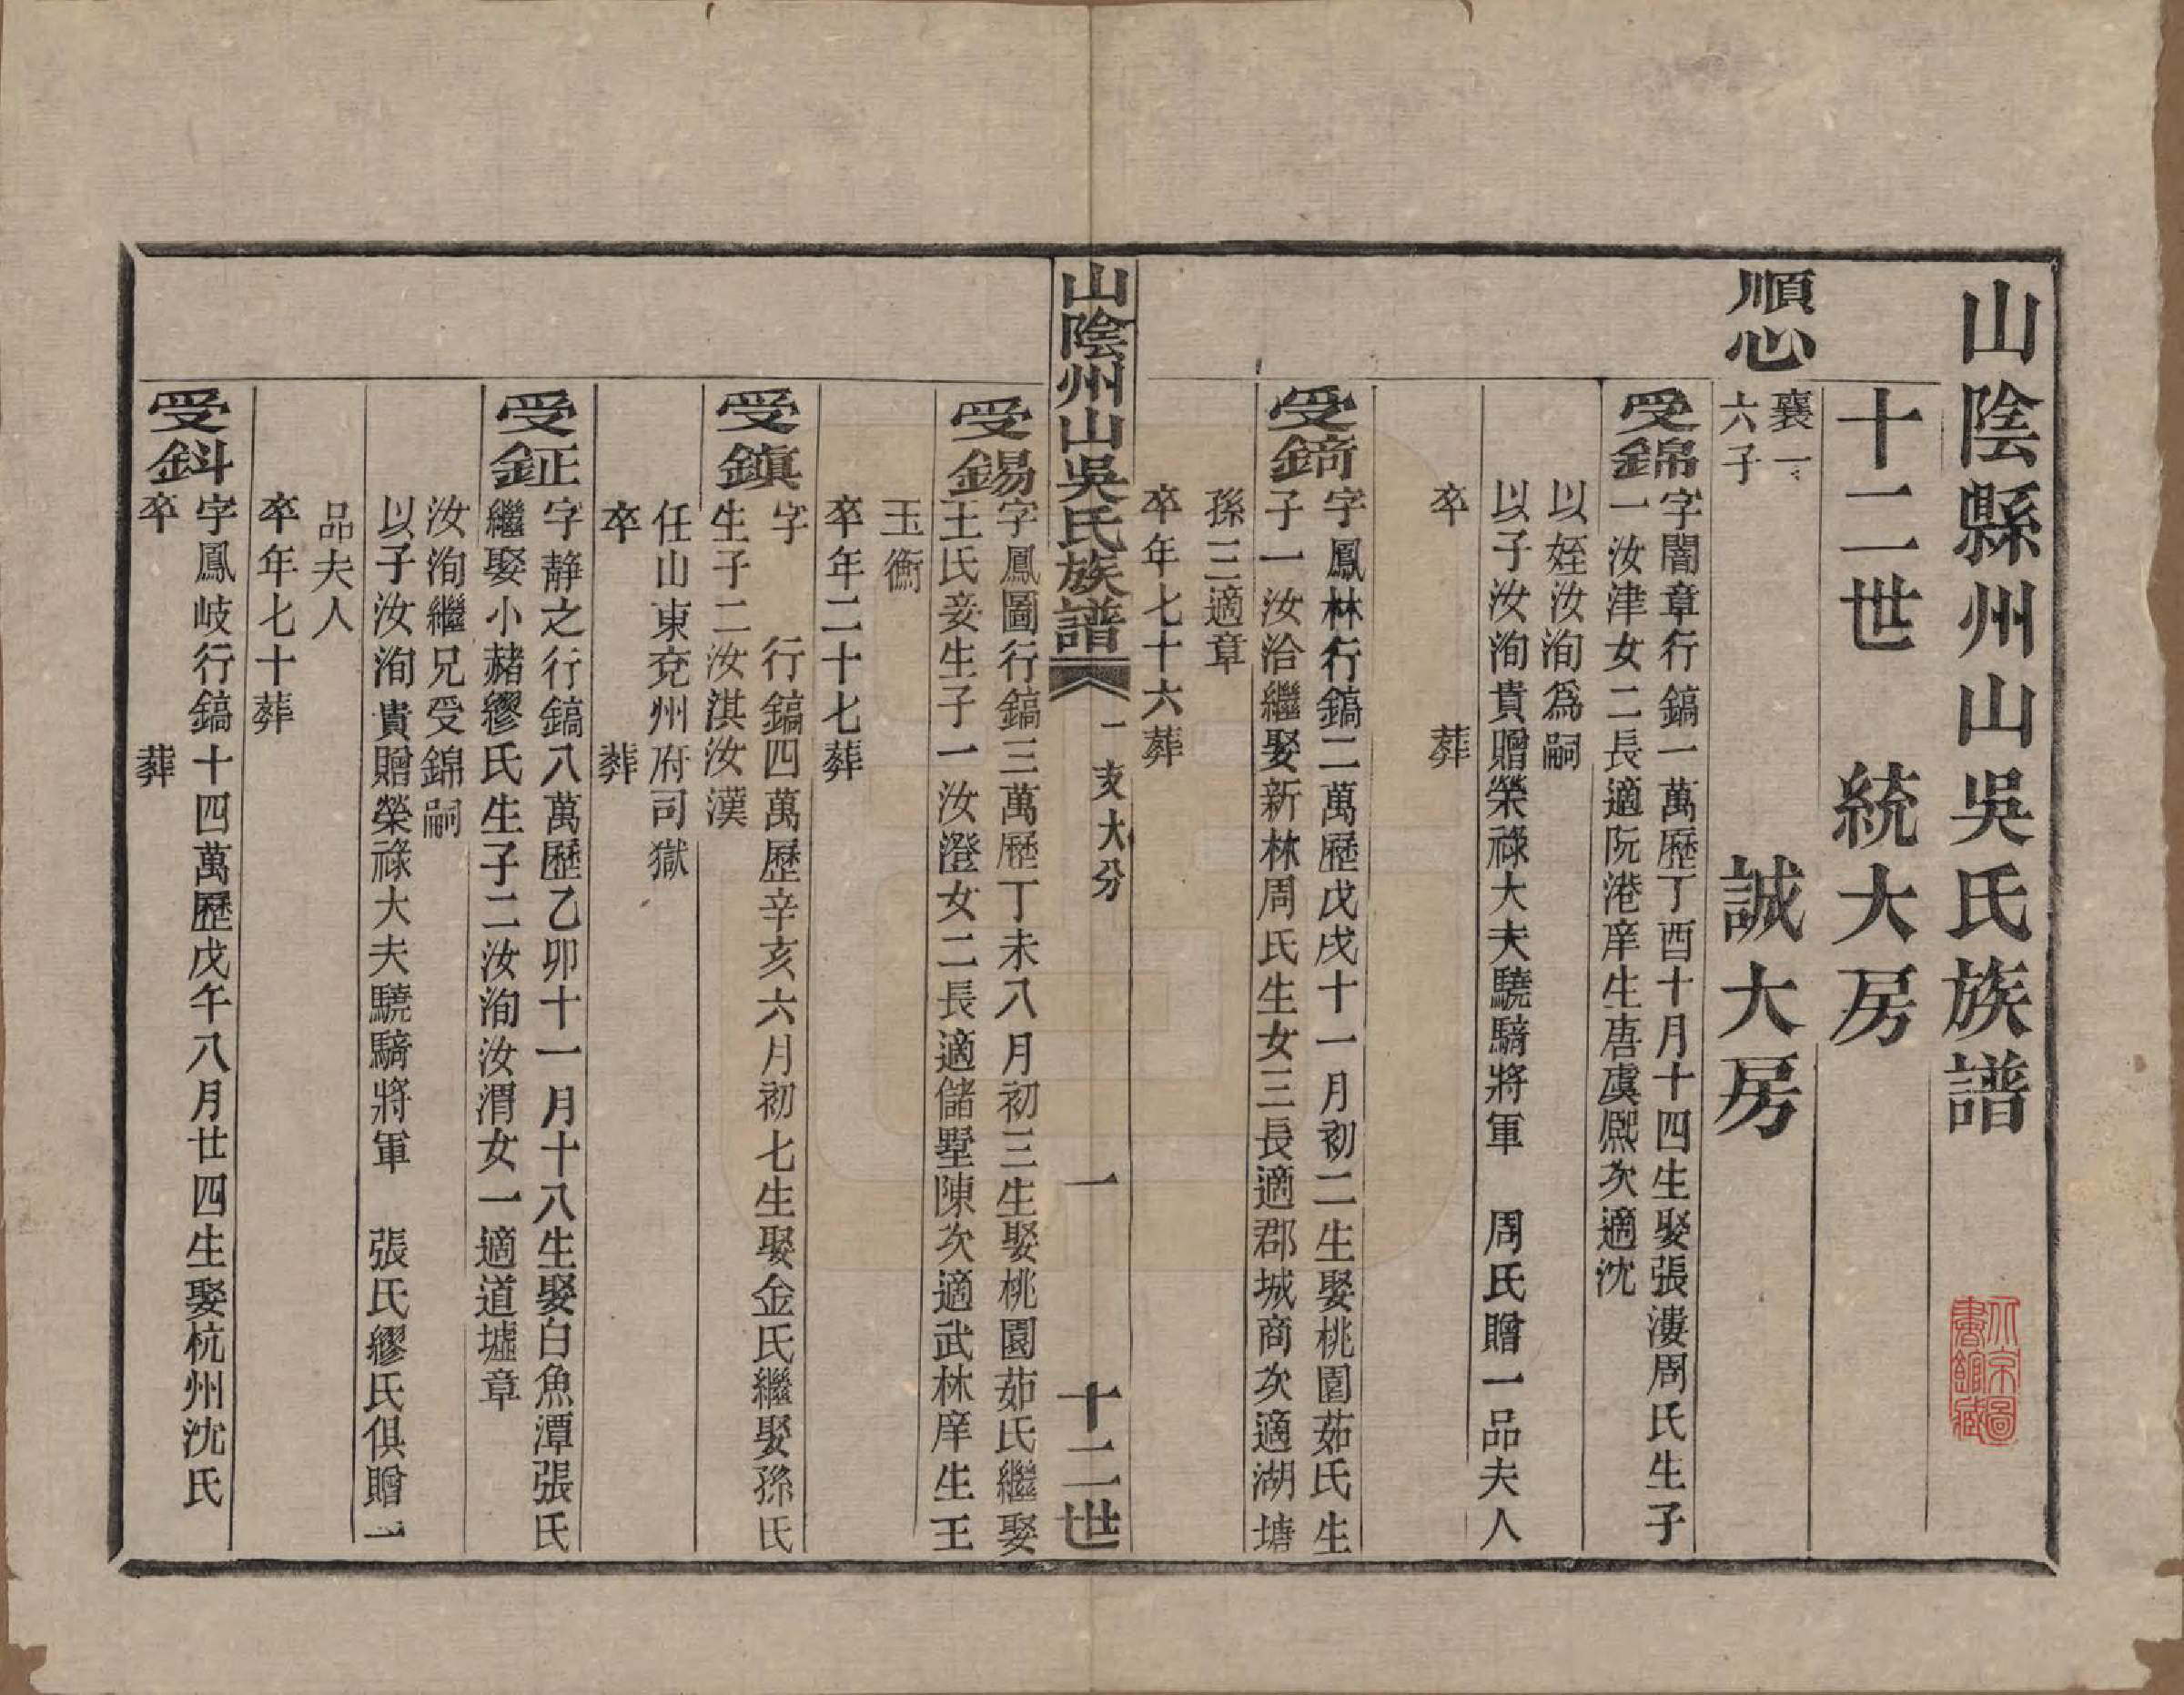 山陰縣州山吳氏族譜
十二世　統大房
順心　襄一　六子　誠大房
受錦
字闇章行鎬一萬歷丁酉十月十四生娶張漊周氏生子
一汝津女二長適阮港庠生唐虞熙次適沈
以姪汝洵爲嗣
以子汝洵貴贈榮祿大夫驍騎將軍　周氏贈一品夫人
卒　葬
受錡
字鳳林行鎬二萬歷戊戌十一月初二生娶桃園茹氏生
子一汝洽繼娶新林周氏生女三長適郡城商次適湖塘
孫三適章
卒年七十六葬
山陰州山吳氏族譜　一支大分　一　十二世
受錫
字鳳圖行鎬三萬歷丁未八月初三生娶桃園茹氏繼娶
王氏妾生子一汝澄女二長適儲墅陳次適武林庠生王
玉衡
卒年二十七葬
受鎮
字　行鎬四萬歷辛亥六月初七生娶金氏繼娶孫氏
生子二汝淇汝漢
任山東兗州府司獄
卒　葬
受鉦
字靜之行鎬八萬歷乙卯十一月十八生娶白魚潭張氏
繼娶小赭繆氏生子二汝洵汝渭女一適道墟章
汝洵繼兄受錦嗣
以子汝洵貴贈榮祿大夫驍騎將軍　張氏繆氏俱贈一
品夫人
卒年七十葬
受鈄
字鳳岐行鎬十四萬歷戊午八月廿四生娶杭州沈氏
卒　葬